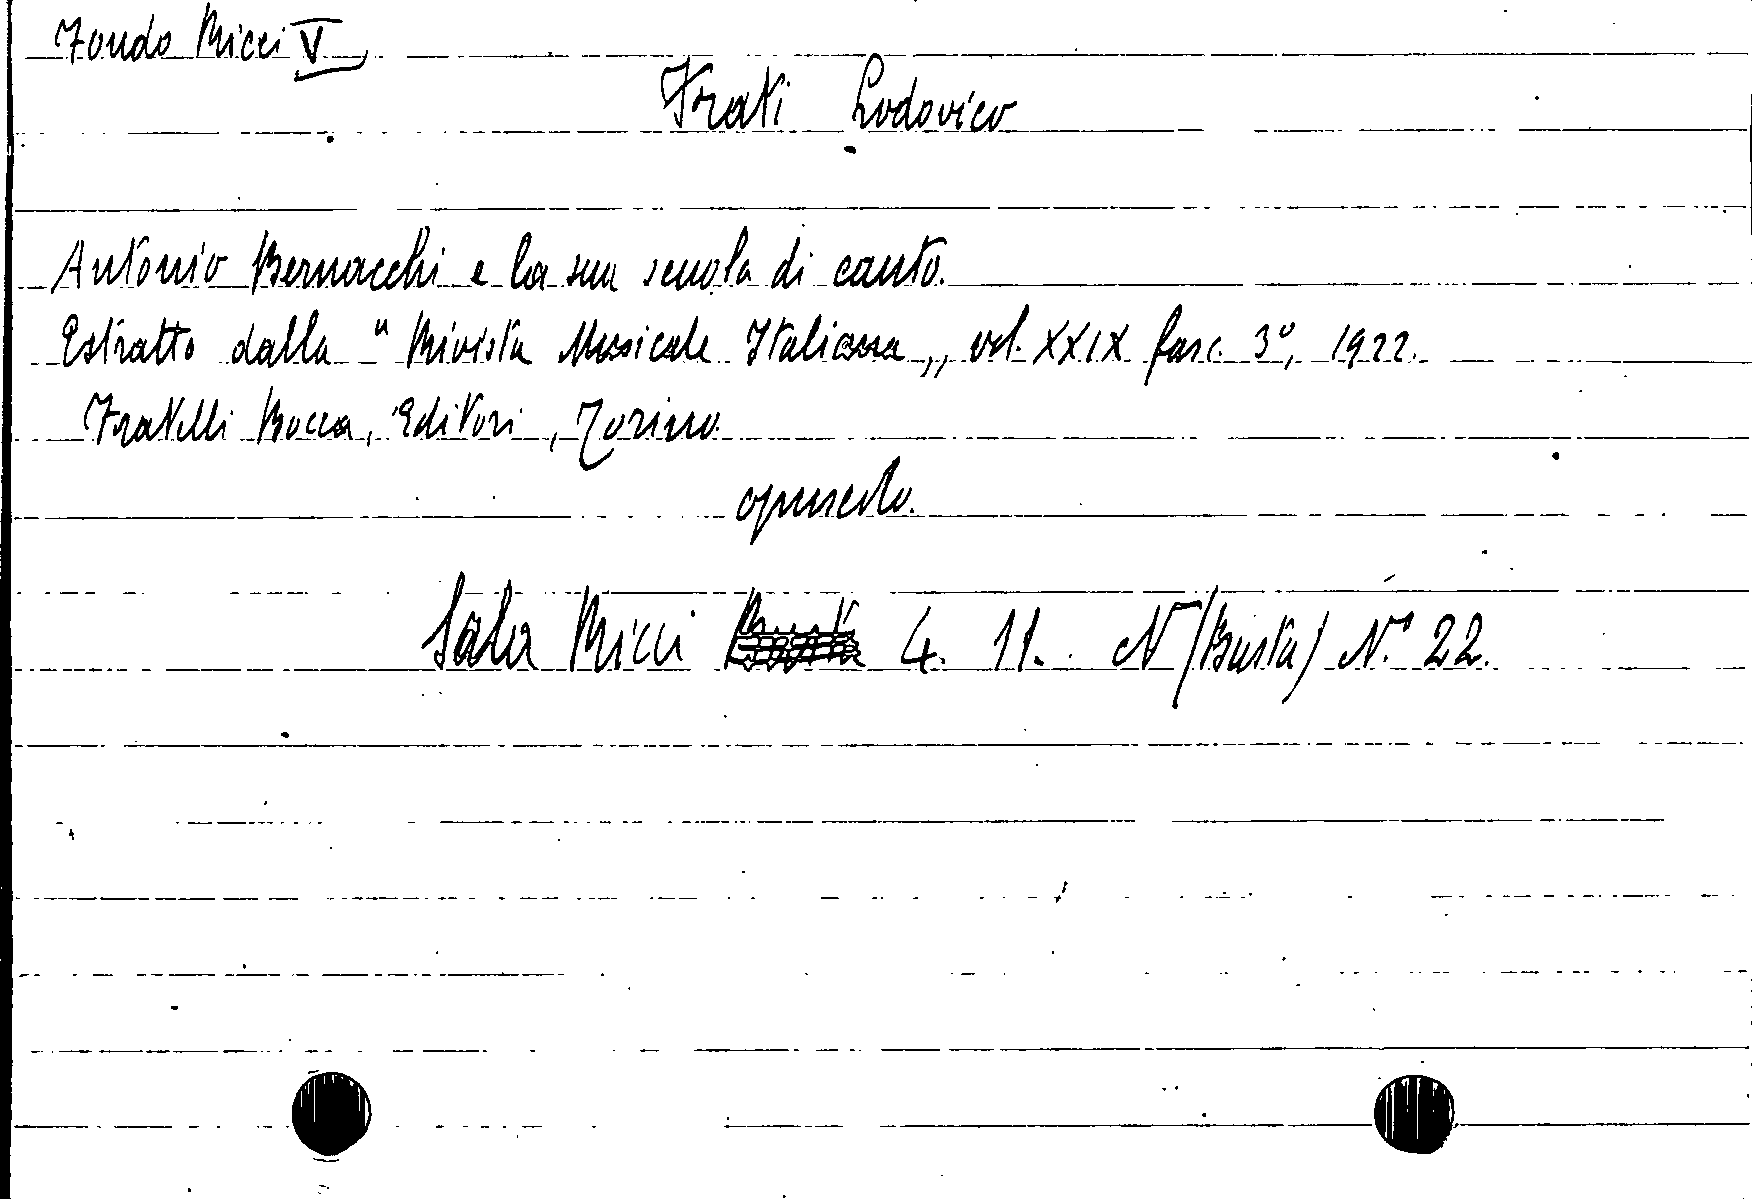 Fondo Ricci V
Frati Lodovico
Antonio Bernacchi e la sua scuola di canto.
Estratto dalla "Rivista Musicale Italiana„ vol. XXIX fasc. 3º, 1922.
Fratelli Bocca, Editori, Torino.
opuscolo.
Sala Ricci 4. 11. N (Busta) N.º 22.